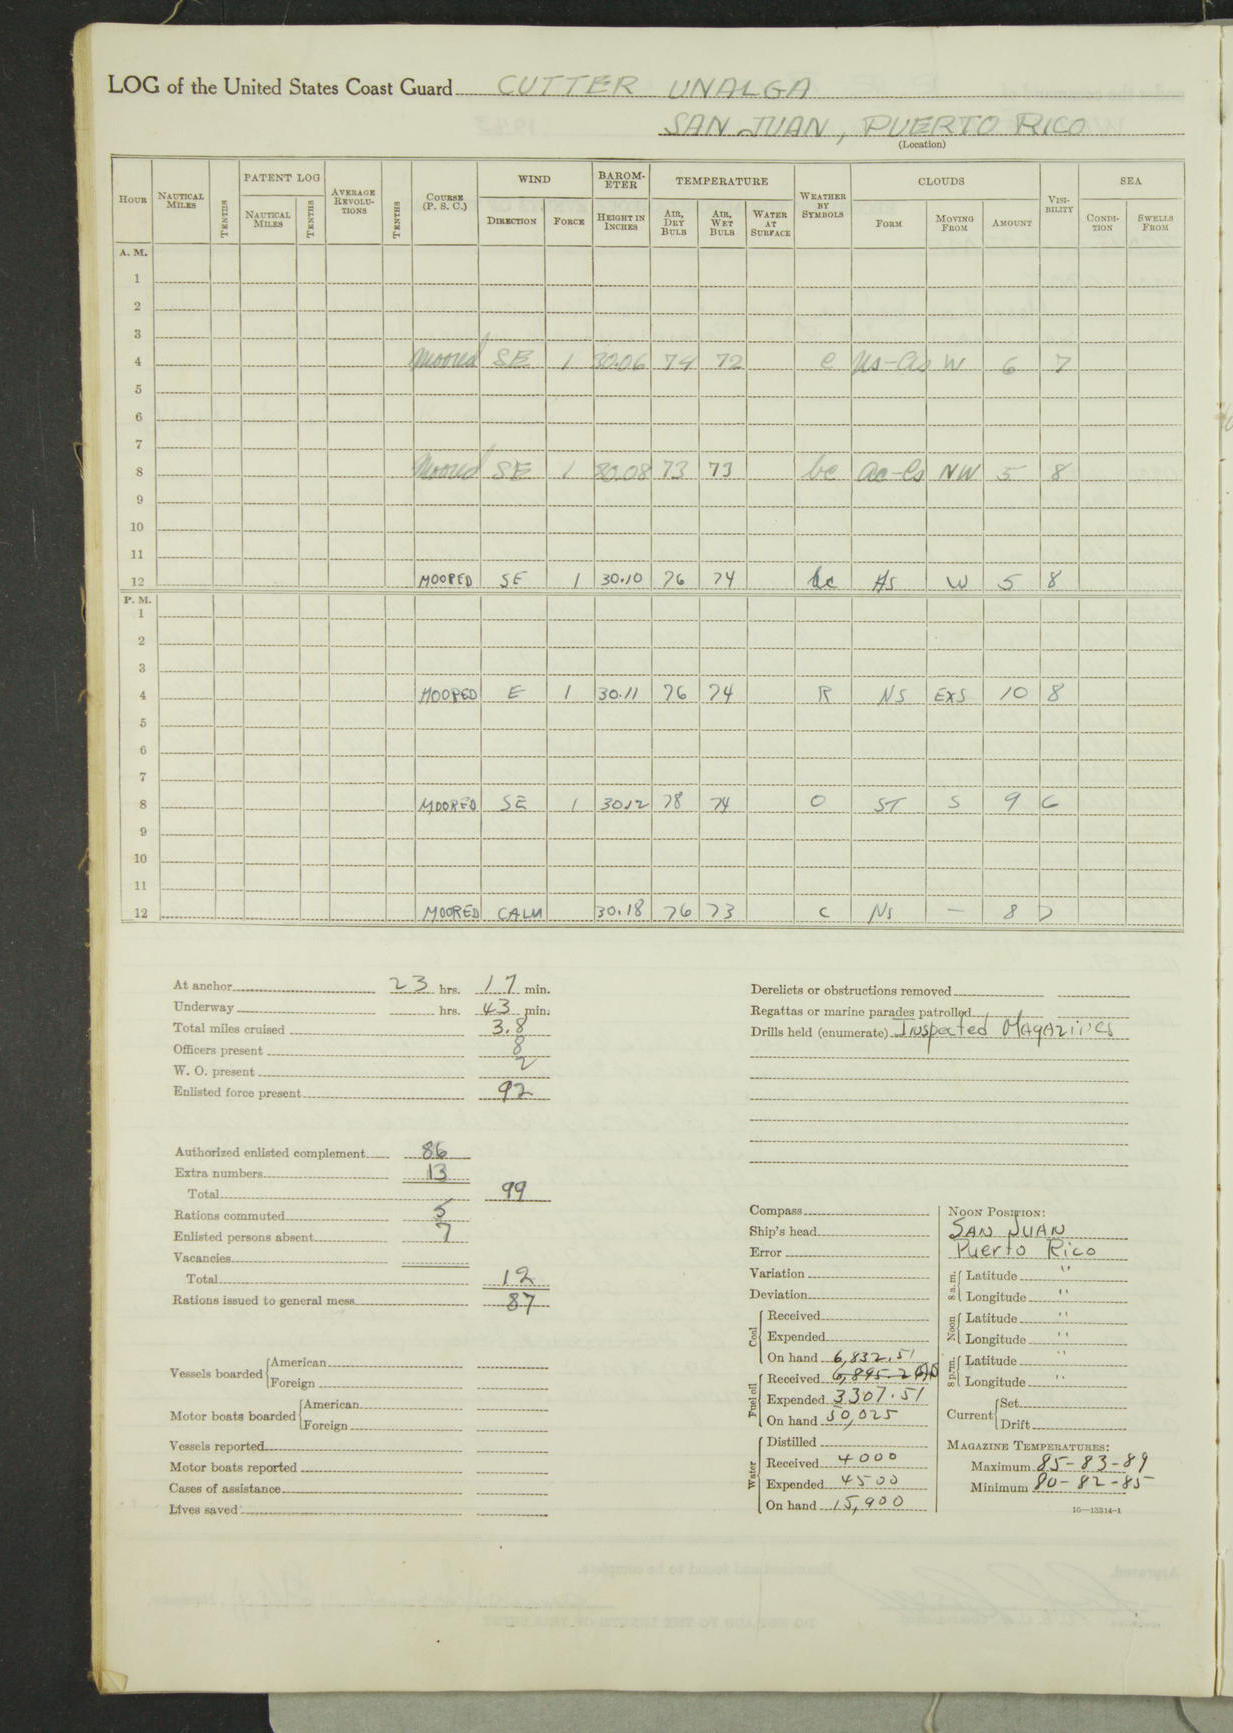 LOG of the United States Coast Guard CUTTER UNALGA
SAN JUAN, PUERTO RICO
(Location)
HOUR NAUTICAL MILES TENTHS PATENT LOG NAUTICAL MILES TENTHS AVERAGE REVOLU-TIONS TENTHS COURSE (P. S. C.) WIND DIRECTION FORCE BAROM-ETER HEIGHT IN INCHES TEMPERATURE AIR, DRY BULB AIR, WET BULB WATER AT SURFACE WEATHER BY SYMBOLS CLOUDS FORM MOVING FROM AMOUNT VISI-BILITY SEA CONDI-TION SWELLS FROM
A. M.
1
2
3
4 Moored SE 1 30.06 74 72 c Ns-As W 6 7
5
6
7
8 Moored SE 1 30.08 73 73 bc Ac-Cs NW 5 8
9
10
11
12 MOORED SE 1 30.10 76 74 bc As W 5 8
P. M.
1
2
3
4 MOORED E 1 30.11 76 74 R NS ExS 10 8
5
6
7
8 MOORED SE 1 30.12 78 74 O ST S 9 6
9
10
11
12 MOORED CALM 30.18 76 73 C Ns — 8 7
At anchor 23 hrs. 17 min.
Underway hrs. 43 min.
Total miles cruised 3.8
Officers present 8
W. O. present 2
Enlisted force present 92
Authorized enlisted complement 86
Extra numbers 13
Total 99
Rations commuted 5
Enlisted persons absent 7
Vacancies
Total 12
Rations issued to general mess 87
Vessels boarded American
Foreign
Motor boats boarded American
Foreign
Vessels reported
Motor boats reported
Cases of assistance
Lives saved
Derelicts or obstructions removed
Regattas or marine parades patrolled
Drills held (enumerate) Inspected Magazines
Compass
Ship's head
Error
Variation
Deviation
Coal Received
Expended
On hand 6,832.51
Fuel oil Received 6,895.2
Expended 3307.51
On hand 50,025
Water Distilled
Received 4000
Expended 4500
On hand 15,900
NOON POSITION:
SAN JUAN
Puerto Rico
8 a.m. Latitude "
Longitude "
Noon Latitude "
Longitude "
8 p.m. Latitude "
Longitude "
Current Set
Drift
MAGAZINE TEMPERATURES:
Maximum 85-83-89
Minimum 80-82-85
16—13314-1